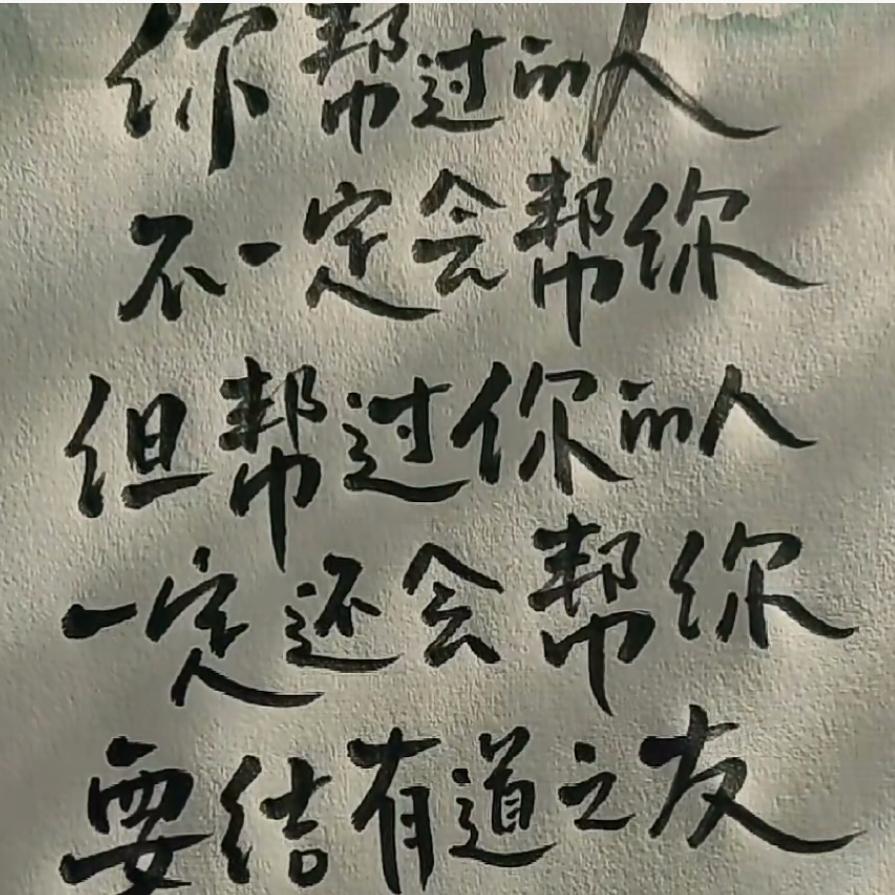 你帮过的人
不一定会帮你
但帮过你的人
一定还会帮你
要结有道之友